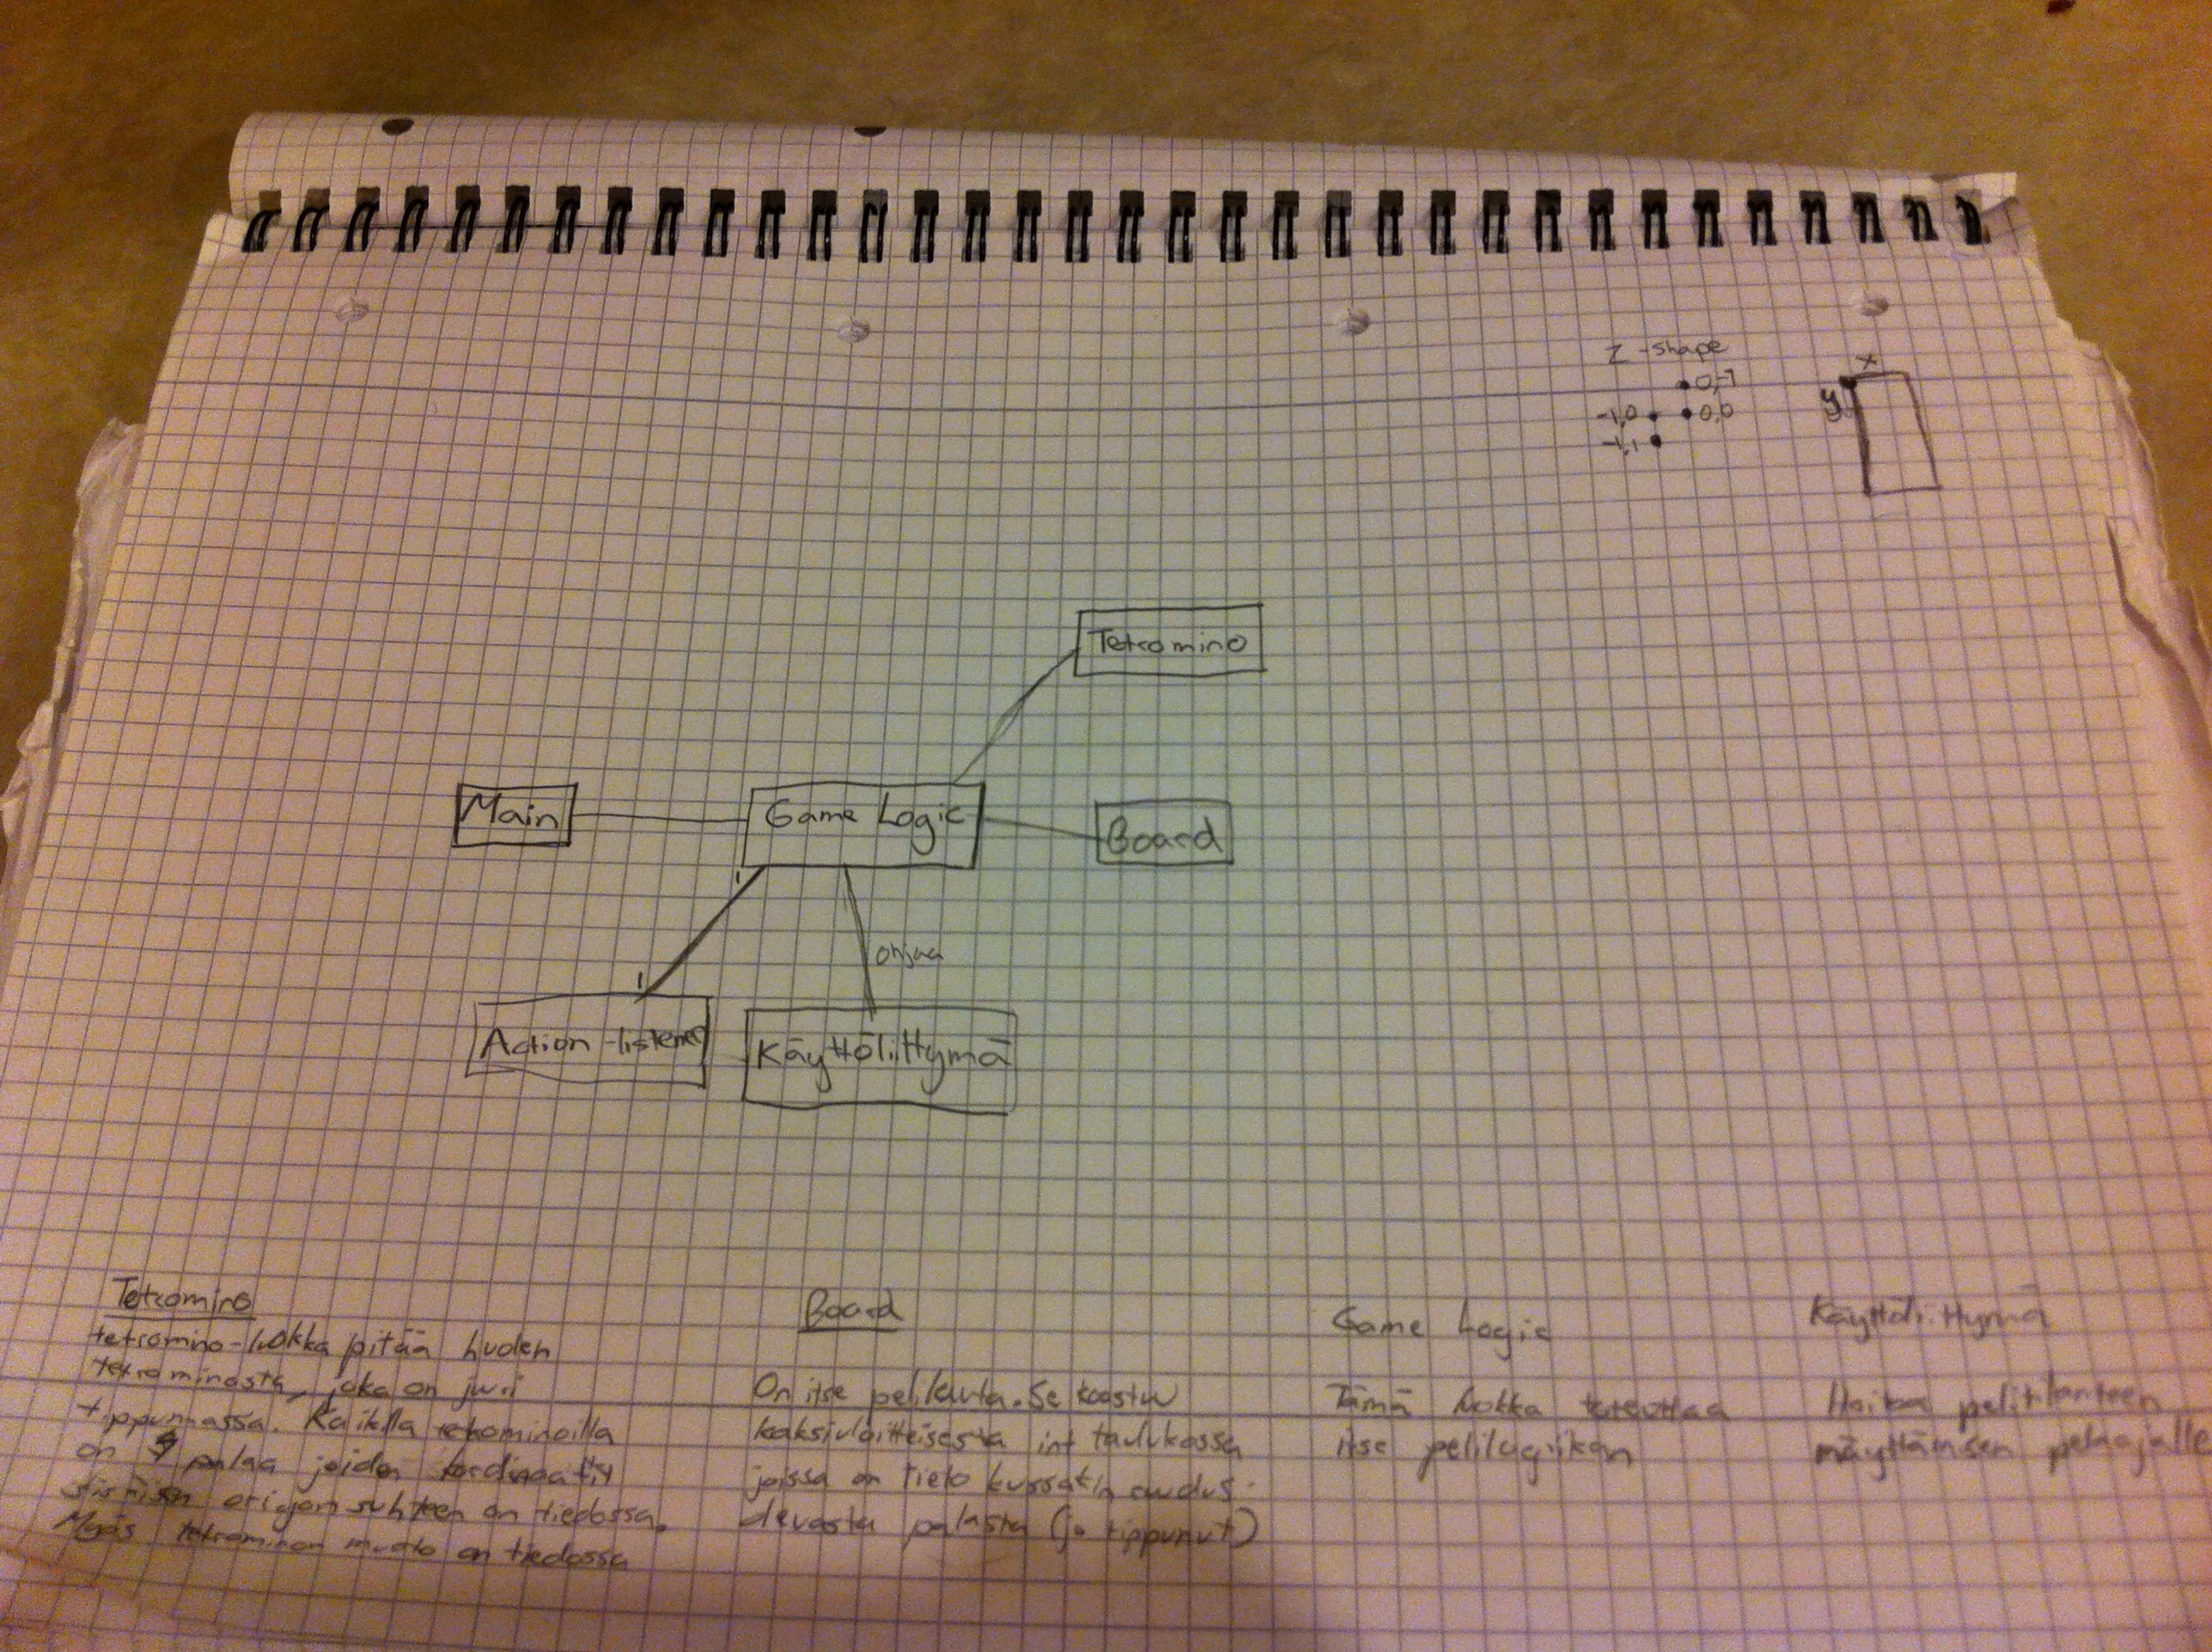 Z-shape
0,-1
-1,0
0,0
-1,1
x
y
Tetromino
Main
Game Logic
Board
1
ohjaa
1
Action-listener
Käyttöliittymä
Tetromino
tetromino-luokka pitää huolen
tetrominosta, joka on juuri
tippumassa. Kaikilla tetrominoilla
on palaa joiden koordinaatit
sisäisen origon suhteen on tiedossa.
Myös tetrominon muoto on tiedossa
Board
On itse pelilauta. Se koostuu
kaksiuloitteisesta int taulukossa
joissa on tieto kussakin ruudus-
devasta palasta (jo tippunut)
Game Logic
Tämä luokka toteuttaa
itse pelilogiikan
Käyttöliittymä
Hoitaa pelitilanteen
näyttämisen pelaajalle